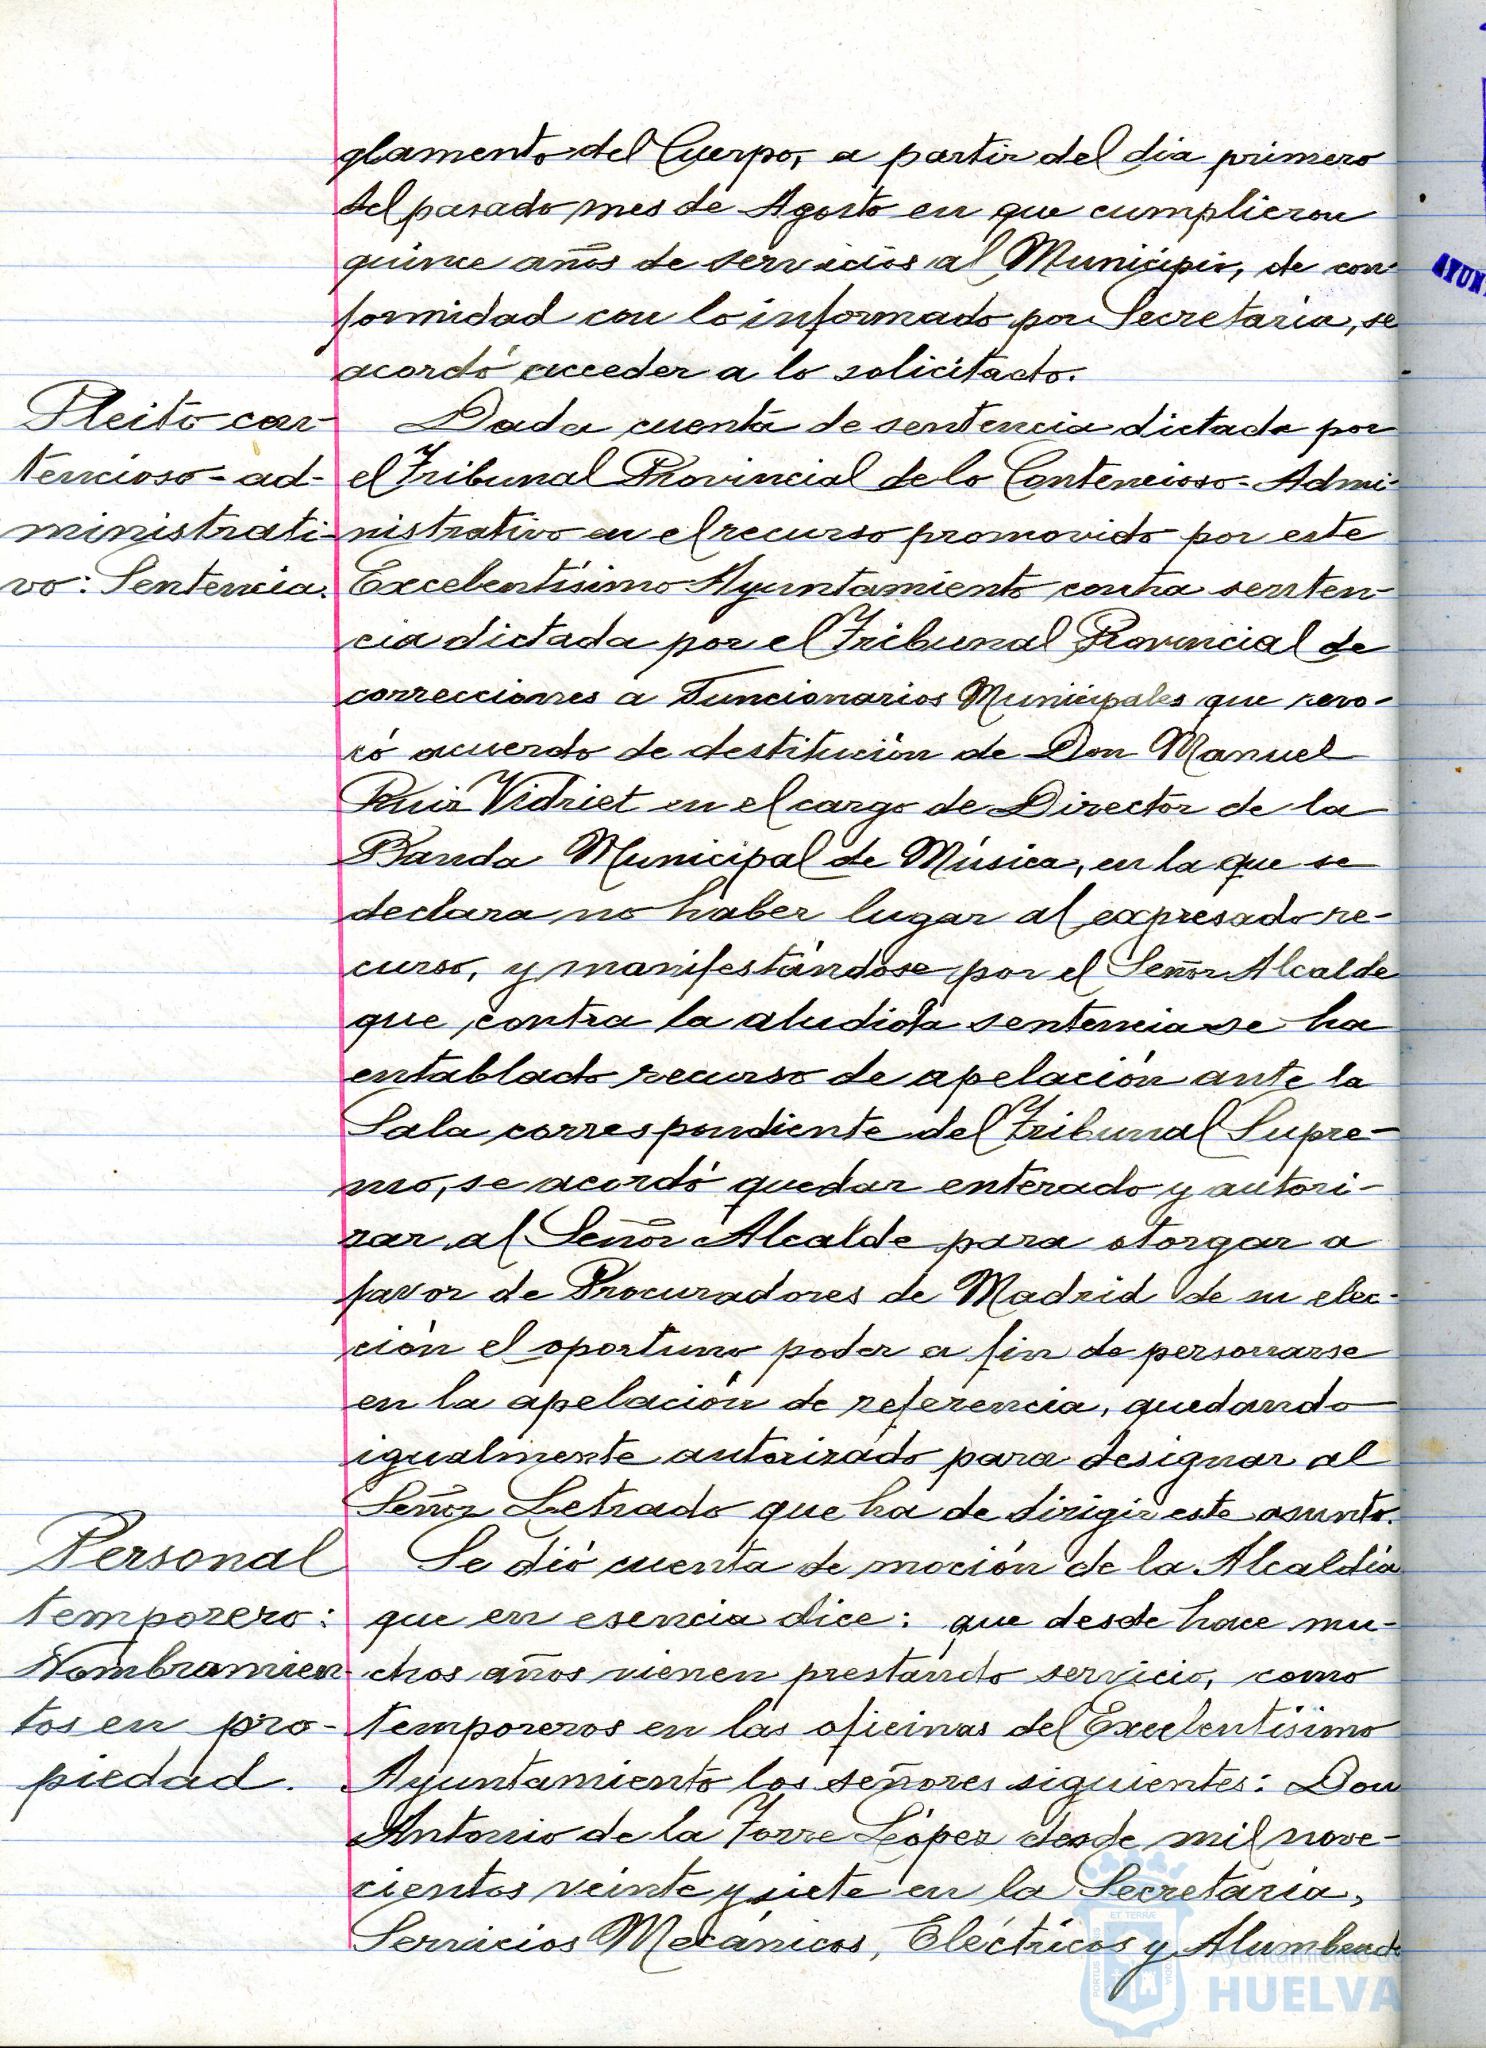 glamento del Cuerpo, a partir del dia primero
del pasado mes de Agosto en que cumplieron
quince años de servicios al Municipio, de con-
formidad con lo informado por Secretaria, se
acordó acceder a lo solicitado.
Pleito con-
tencioso-ad-
ministrati-
vo: Sentencia.
Dada cuenta de sentencia dictada por
el Tribunal Provincial de lo Contencioso-Admi-
nistrativo en el recurso promovido por este
Excelentísimo Ayuntamiento contra senten-
cia dictada por el Tribunal Provincial de
correcciones a Funcionarios Municipales que revo-
có acuerdo de destitución de Don Manuel
Ruiz Vidriet en el cargo de Director de la
Banda Municipal de Música, en la que se
declara no haber lugar al expresado re-
curso, y manifestándose por el Señor Alcalde
que contra la aludida sentencia se ha
entablado recurso de apelación ante la
Sala correspondiente del Tribunal Supre-
mo, se acordó quedar enterado y autori-
zar al Señor Alcalde para otorgar a
favor de Procuradores de Madrid de su elec-
ción el oportuno poder a fin de personarse
en la apelación de referencia, quedando
igualmente autorizado para designar al
Señor Letrado que ha de dirigir este asunto.
Personal
temporero:
Nombramien-
tos en pro-
piedad.
Se dió cuenta de moción de la Alcaldía
que en esencia dice: que desde hace mu-
chos años vienen prestando servicio, como
temporeros en las oficinas del Excelentísimo
Ayuntamiento los señores siguientes: Don
Antonio de la Torre López desde mil nove-
cientos veinte y siete en la Secretaría,
Servicios Mecánicos, Eléctricos y Alumbrado
AYUN
Ayuntamiento de
HUELVA